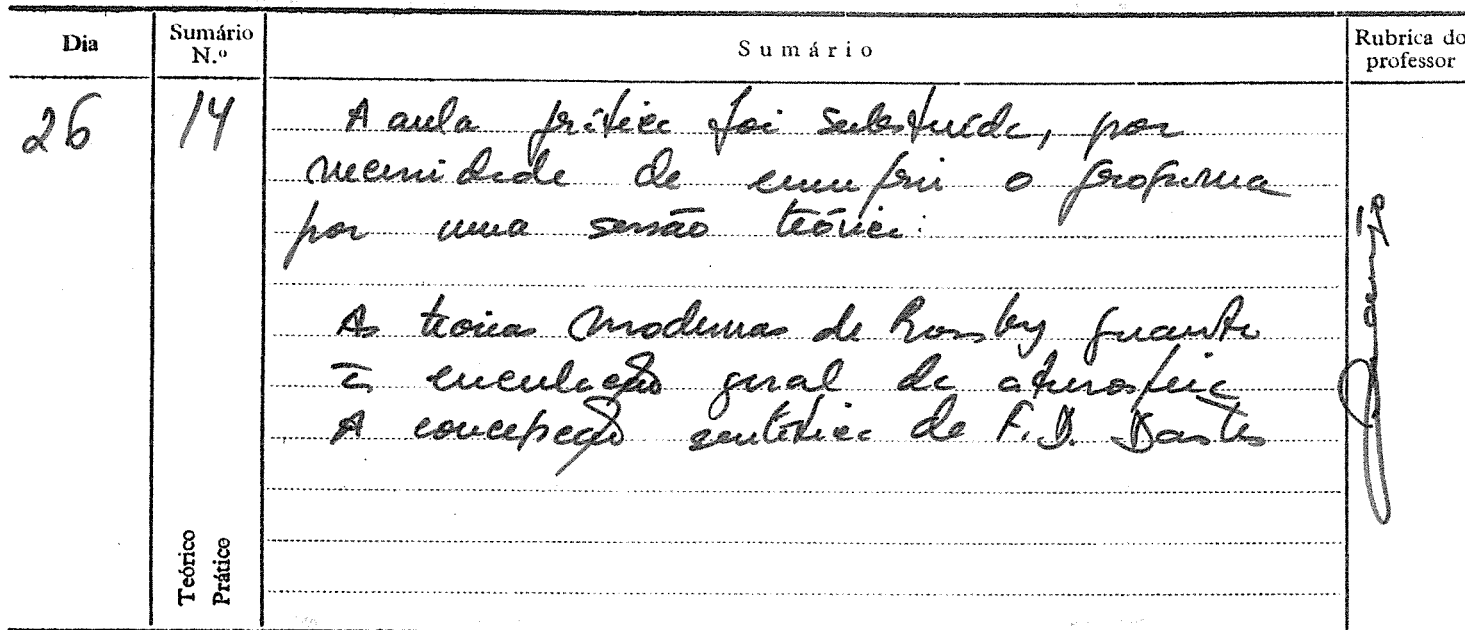 Dia
Sumário N.º
Sumário
Rubrica do professor
26
14
A aula prática foi substituída, por
necessidade de cumprir o programa
por uma sessão teórica:
As teorias modernas de Rossby quanto
à circulação geral da atmosfera
A concepção sintética de F.D. Dastes
Teórico
Prático